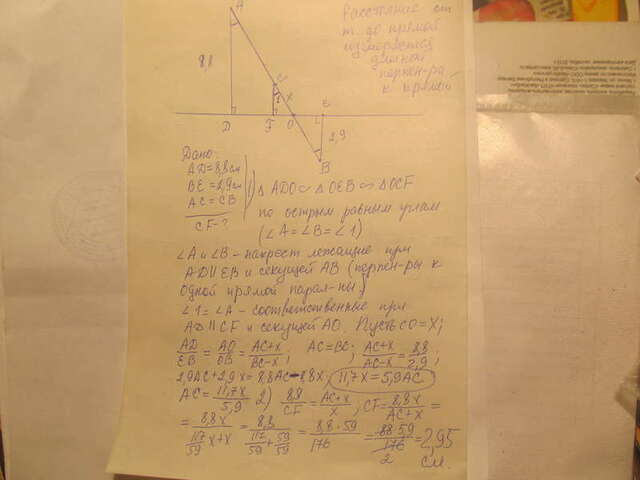 Расстояние от
т. до прямой
измеряется
длиной
перпен-ра
к прямой
A
8,8
C
1
x
E
D
F
O
2,9
B
Дано:
AD=8,8см
BE=2,9см
AC=CB
CF-?
1) △ ADO ∽ △ OEB ∽ △ OCF
по острым равным углам
(∠A=∠B=∠1)
∠A и ∠B - накрест лежащие при
AD||EB и секущей AB (перпен-ры к
одной прямой парал-ны)
∠1=∠A - соответственные при
AD||CF и секущей AO. Пусть CO=x;
AD/EB = AO/OB = AC+x/BC-x; AC=BC; AC+x/AC-x = 8,8/2,9;
2,9AC+2,9x=8,8AC-8,8x; 11,7x=5,9AC
AC=11,7x/5,9 2) 8,8/CF = AC+x/x; CF=8,8x/AC+x =
= 8,8x/117/59 x+x = 8,8/117/59+59/59 = 8,8·59/176 = 88·59/176 2 = 2,95
см.